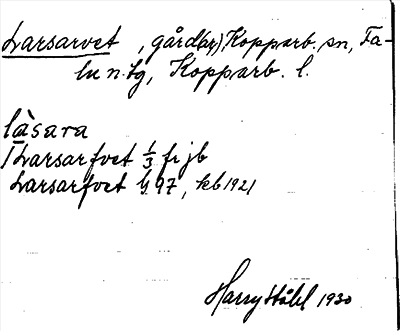 Larsarvet, gård(ar), Kopparb. sn, Fa-
lu n. tg, Kopparb. l.
làsara
Larsarfvet 1/3 fr jb
Larsarfvet G 97, kb 1921
Harry Ståhl 1930